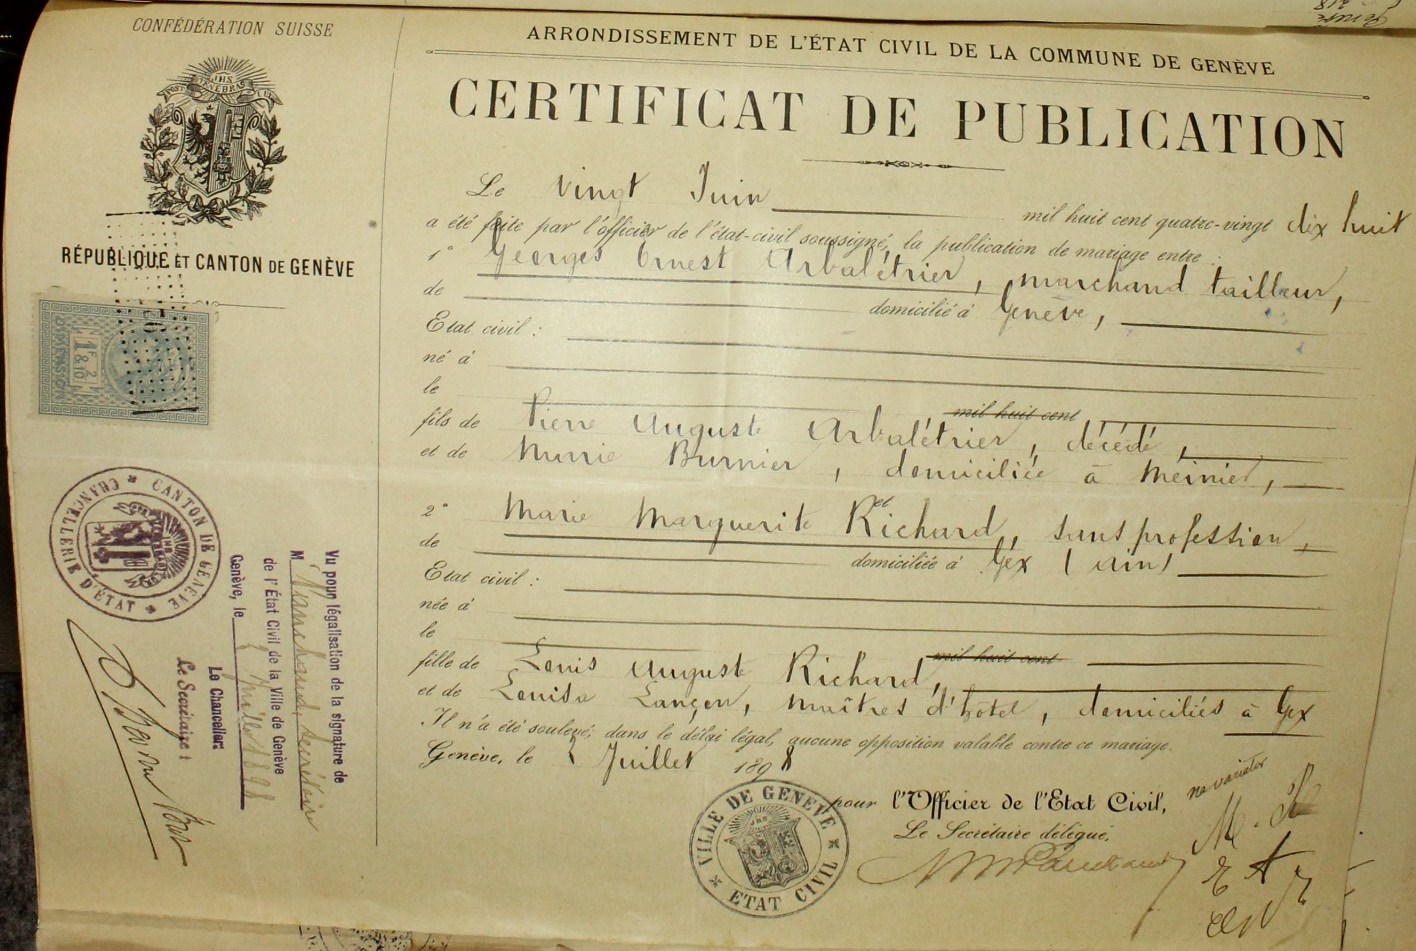 CONFÉDÉRATION SUISSE
JHS
POST TENEBRAS LUX
RÉPUBLIQUE ET CANTON DE GENÈVE
1F & 2/10
DIMENSION
CHANCELLERIE D'ÉTAT * CANTON DE GENÈVE *
Vu pour légalisation de la signature de
M Marchand, secrétaire
de l'État Civil de la Ville de Genève
Genève, le Juillet 1898
Le Chancelier:
Le Secrétaire:
ARRONDISSEMENT DE L'ÉTAT CIVIL DE LA COMMUNE DE GENÈVE
CERTIFICAT DE PUBLICATION
Le vingt Juin mil huit cent quatre-vingt dix huit
a été faite par l'officier de l'état-civil soussigné, la publication de mariage entre :
1° Georges Ernest Arbalétrier, marchand tailleur,
de domicilié à Genève,
Etat civil :
né à
le mil huit cent
fils de Pierre Auguste Arbalétrier, décédé,
et de Marie Burnier, domiciliée à Meinier,
2° Marie Marguerite Richard, et sans profession,
de domiciliée à Gex (Ain)
Etat civil :
née à
le mil huit cent
fille de Louis Auguste Richard,
et de Louise Lançon, maîtres d'hôtel, domiciliés à Gex
Il n'a été soulevé, dans le délai légal, aucune opposition valable contre ce mariage.
Genève, le Juillet 1898
pour l'Officier de l'Etat Civil,
Le Secrétaire délégué,
VILLE DE GENÈVE * ETAT CIVIL *
ne varietur
M. R
E A